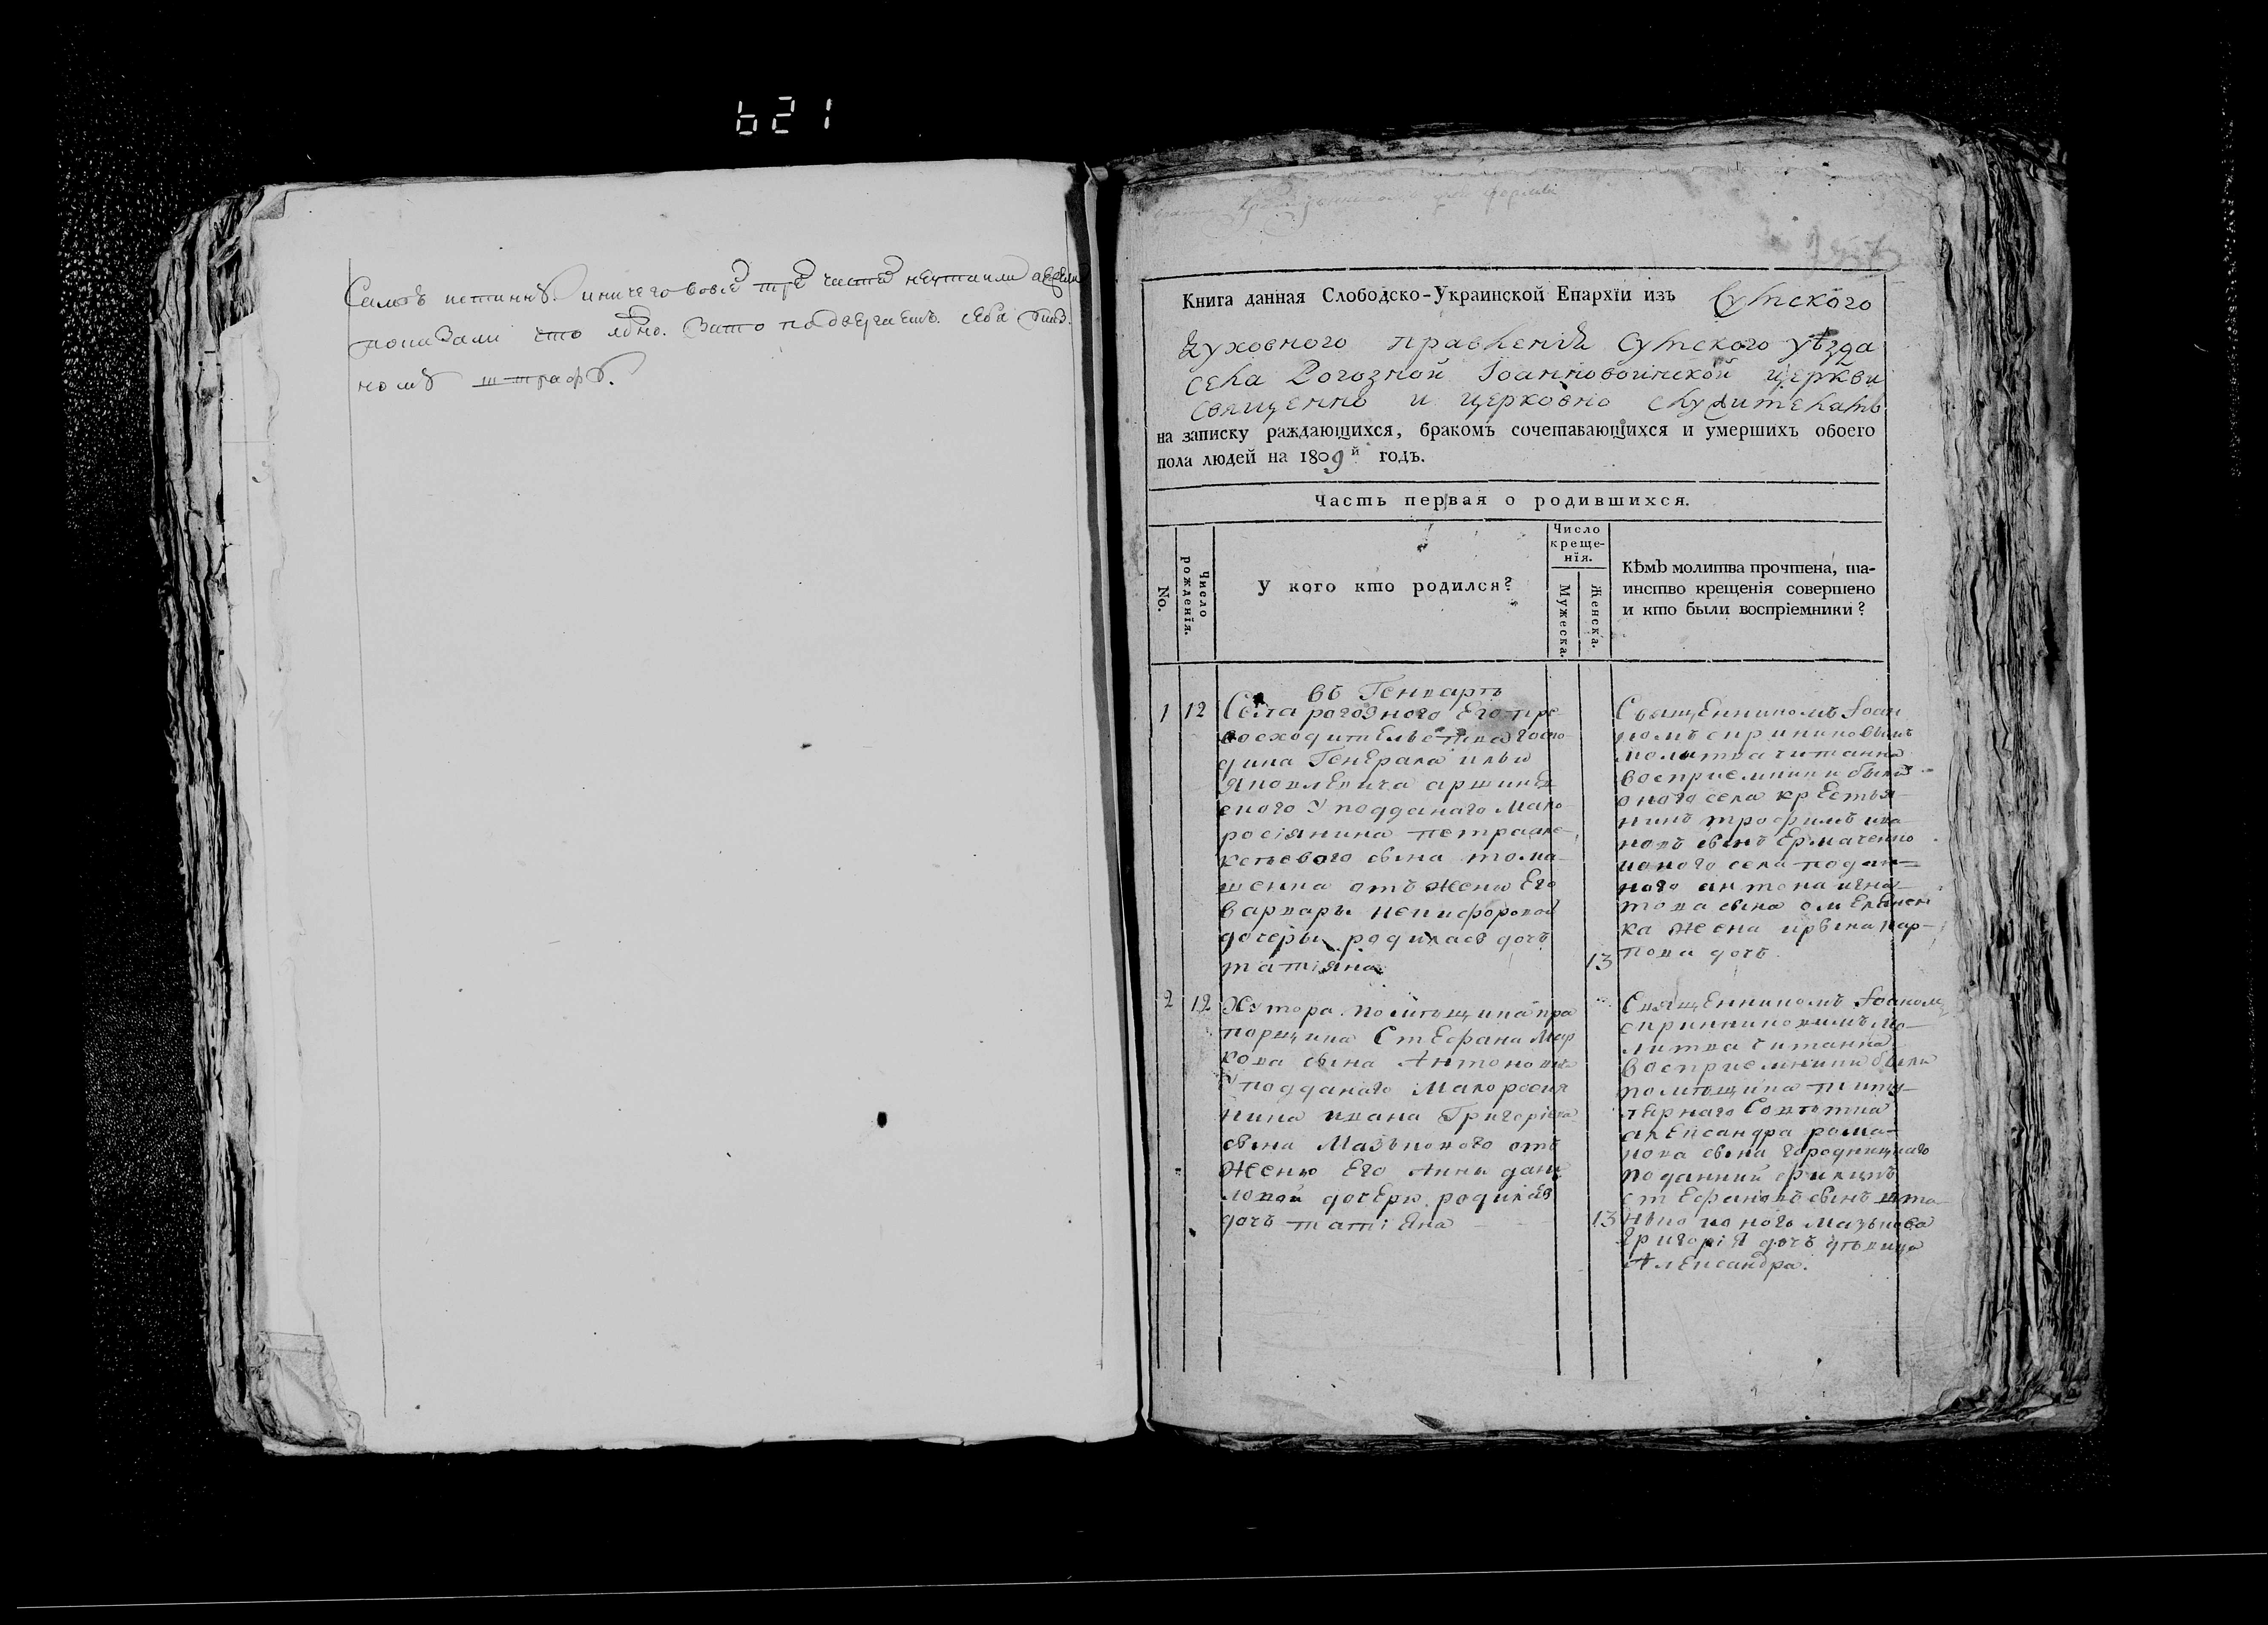 621
Самъ истиннѣ. иничего вовсе тре части неутаили аесли
показали что ложно. Зато подвергаемъ себя
номѣ штрафѣ.
Книга данная Слободско-Украинской Епархїи изъ Сумского
духовного правленія Сумского уѣзда
села Рогозной Іоанновоинской церкви
священно и церковно служителямъ
на записку раждающихся, бракомъ сочетавающихся и умершихъ обоего
пола людей на 1809й годъ.
Часть первая о родившихся.
No.
Число рожденїя.
У кого кто родился?
Число креще-нїя.
Мужеска.
Женска.
Кѣмъ молитва прочтена, та-
инство крещенія совершено
и кто были воспріемники?
въ Генварѣ
1 12 Села рогозного Его пре-
восходительства госпо-
дина Генерала ильи
Яковлевича
ского У подданаго Мало-
росіянина петра але-
ксеевого сына тома-
шенка отъ жены Его
варвары никифоровой
дочеры родилась дочь
татіяна
13
Священникомъ Іоан
номъ
молитва читанна
восприемники были
оного села крестья-
нинъ трофимъ ива-
новъ сынъ Ермаченко
ионого села подан-
ного антона игна-
това сына омельянен
ка жена ирина кар-
пова дочь.
2 12 Хутора политыщина пра
порщика Стефана Мар
кова сына Антонова
У подданаго Малороссия
нина ивана Григоріева
сына Мазъкового отъ
жены Его Анны дани
ловой дочеры родилась
дочь татіяна
13
Священникомъ Іоаном
мо-
литва читанна
восприемники были
александра рома-
нова сына
поданний филипъ
стефановъ сынъ
Мазъкова
григорія дочь девица
Александра.